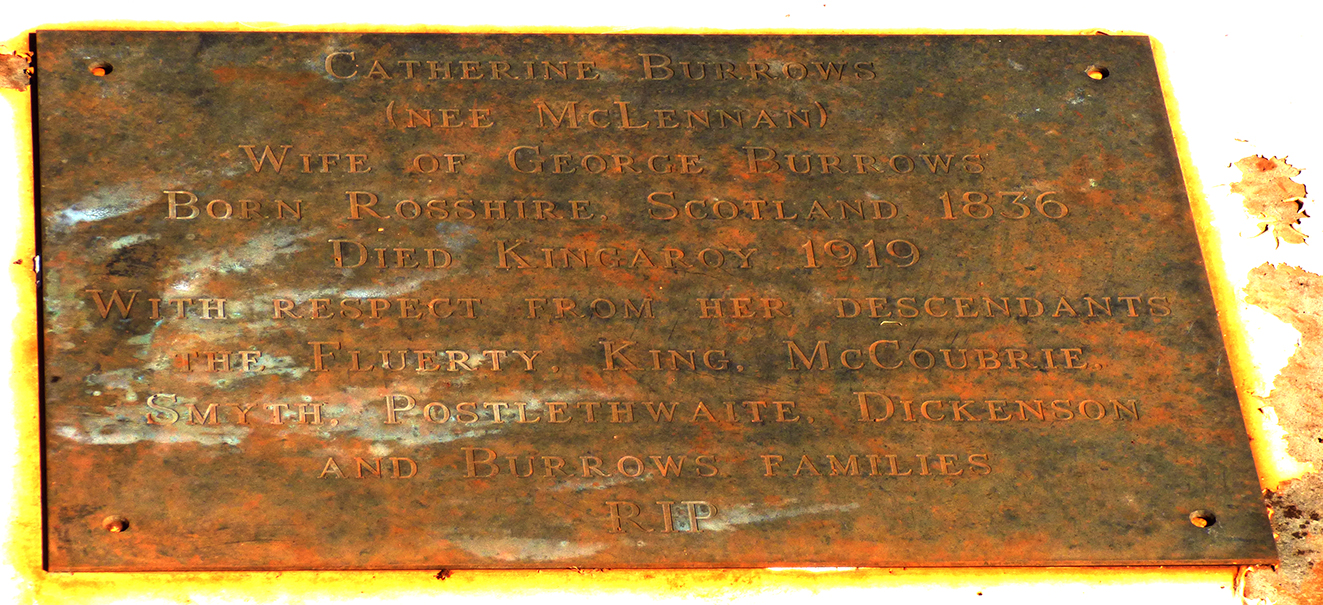 Catherine Burrows
(nee McLennan)
Wife of George Burrows
Born Rosshire, Scotland 1836
Died Kingaroy 1919
With respect from her descendants
the Fluerty, King, McCoubrie,
Smyth, Postlethwaite, Dickenson
and Burrows families
RIP